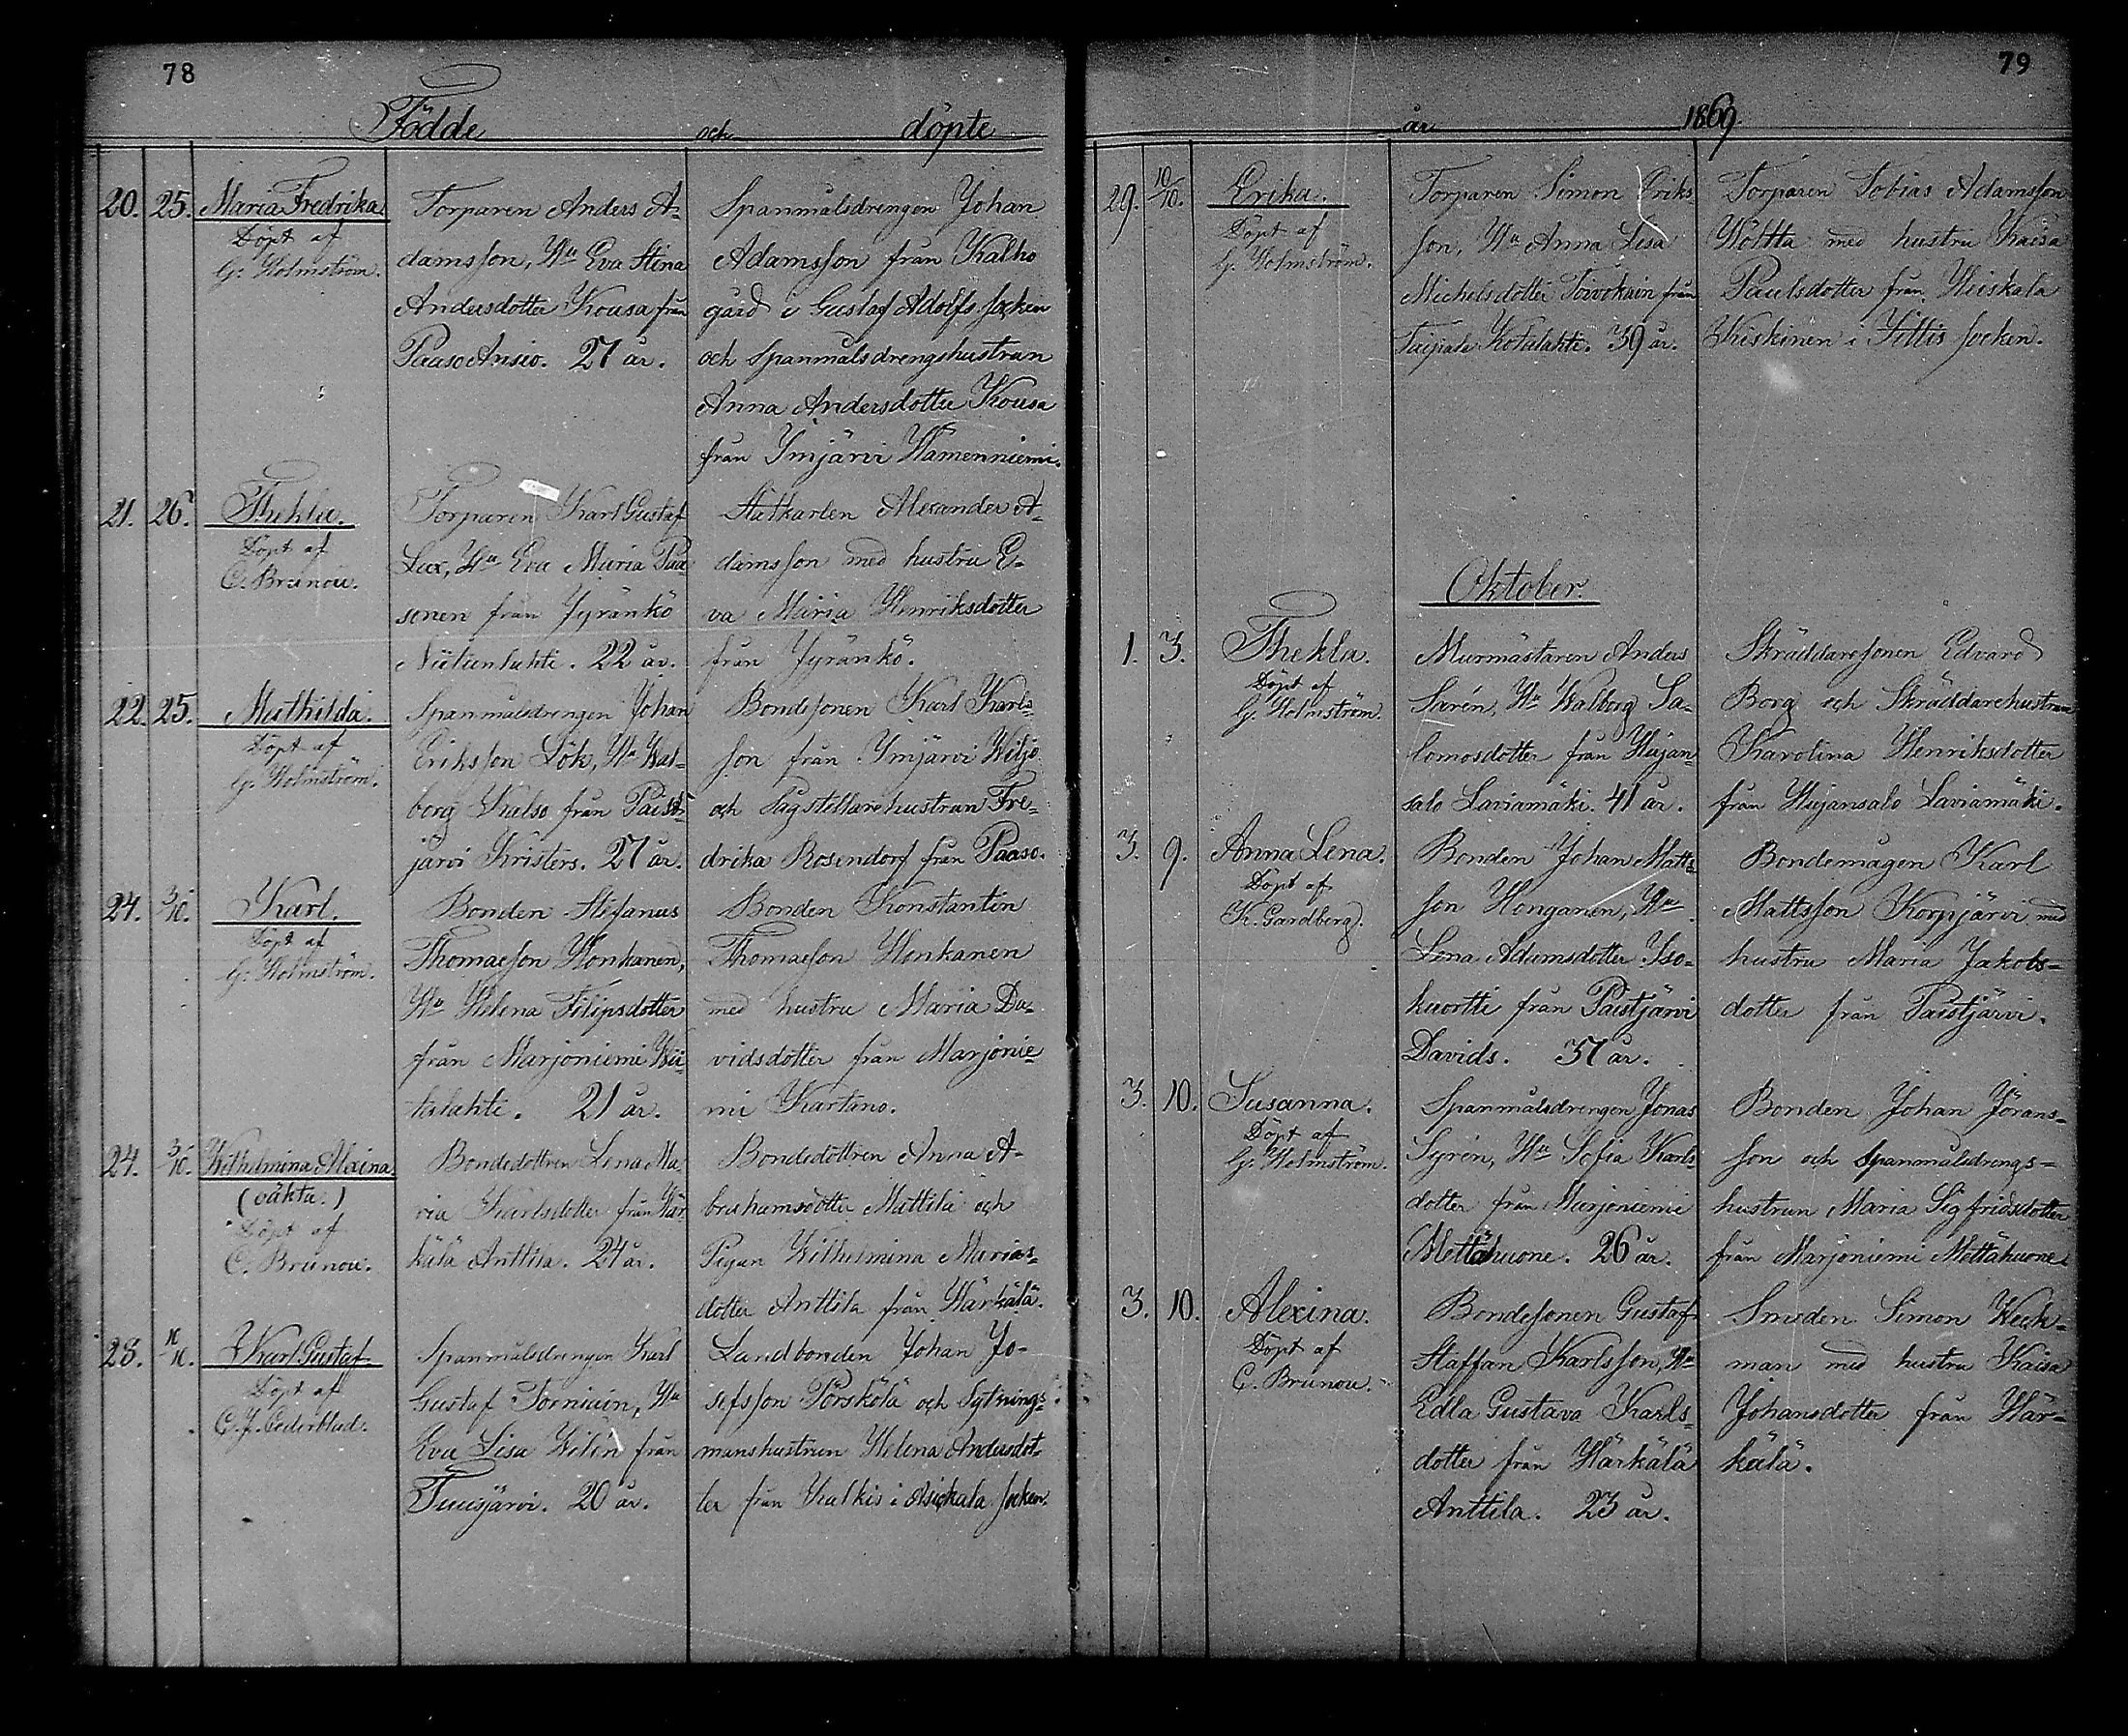 78
Födde och döpte
20. 25. Maria Fredrika.
Döpt af
G. Holmström.
Torparen Anders A=
damsson, Hu Eva Stina
Andersdotter Kousa från
Paaso Ansio. 27 år.
Spanmålsdrengen Johan
Adamsson från Kalho
gård i Gustaf Adolfs socken
och spanmålsdrengshustrun
Anna Andersdotter Kousa
från Ymjärvi Hämenniemi.
21. 26. Thekla.
Döpt af
C. Brunou.
Torparen Karl Gustaf
Lax, Hu Eva Maria Paa
sonen från Jyränkö
Niitunlahti. 22 år.
Statkarlen Alexander A=
damsson med hustru E=
va Maria Henriksdotter
från Jyränkö.
22. 25. Mathilda.
Döpt af
G. Holmström.
Spanmålsdrengen Johan
Eriksson Lök, Hu Wal=
borg Kalso från Paist=
järvi Kristers. 27 år.
Bondesonen Karl Karls=
son från Ymjärvi Wiljo
och Sågställarehustrun Fre=
drika Rosendorf från Paaso.
24. 3/10. Karl.
Döpt af
G. Holmström.
Bonden Stefanus
Thomasson Honkanen,
Hu Helena Filipsdotter
från Marjoniemi Wii=
talahti. 21 år.
Bonden Konstantin
Thomasson Honkanen
med hustru Maria Da=
vidsdotter från Marjonie=
mi Kartano.
24. 3/10. Wilhelmina Alexina
(oäkta.)
Döpt af
C. Brunou.
Bondedottren Lena Ma=
ria Karlsdotter från Här=
kälä Anttila. 24 år.
Bondedottren Anna A=
brahamsdotter Mattila och
Pigan Wilhelmina Marias=
dotter Anttila från Härkälä.
28. 10/10. Karl Gustaf
Döpt af
C. J. Cederblad.
Spanmålsdrengen Karl
Gustaf Torniain, Hu
Eva Lisa Wilén från
Tuusjärvi. 20 år.
Landbonden Johan Jo=
sefsson Pörskölä och Sytnings=
manshustrun Helena Andersdot=
ter från Kalkis i Asikkala socken.
79
år 1869.
29. 10/10. Erika.
Döpt af
G. Holmström.
Torparen Simon Eriks
son, Hu Anna Lisa
Michelsdotter Toivokain från
Taipale Kotalahti. 39 år.
Torparen Tobias Adamsson
Woltta med hustru Kaisa
Paulsdotter från Hiiskala
Kiskinen i Jittis socken.
Oktober.
1. 3. Thekla.
Döpt af
G. Holmström.
Murmästaren Anders
Sarén, Hu Walborg Sa=
lomosdotter från Hujan=
salo Laviamäki. 41 år.
Skräddaresonen Edvard
Borg och Skräddarehustrun
Karolina Henriksdotter
från Hujansalo Laviamäki.
3. 9. Anna Lena.
Döpt af
K. Gardberg.
Bonden Johan Matts=
son Honganen, Hu
Lena Adamsdotter Iso=
kuortti från Paistjärvi
Davids. 37 år.
Bondemågen Karl
Mattsson Korpjärvi med
hustru Maria Jakobs=
dotter från Paistjärvi.
3. 10. Susanna.
Döpt af
G. Holmström.
Spanmålsdrengen Jonas
Syrén, Hu Sofia Karls
dotter från Marjoniemi
Mettähuone. 26 år.
Bonden Johan Jörans=
son och spanmålsdrengs=
hustrun Maria Sigfridsdotter
från Marjoniemi Mettähuone
3. 10. Alexina.
Döpt af
C. Brunou.
Bondesonen Gustaf
Staffan Karlsson, Hu
Edla Gustava Karls=
dotter från Härkälä
Anttila. 23 år.
Smeden Simon Weck=
man med hustru Kaisa
Johansdotter från Här=
kälä.